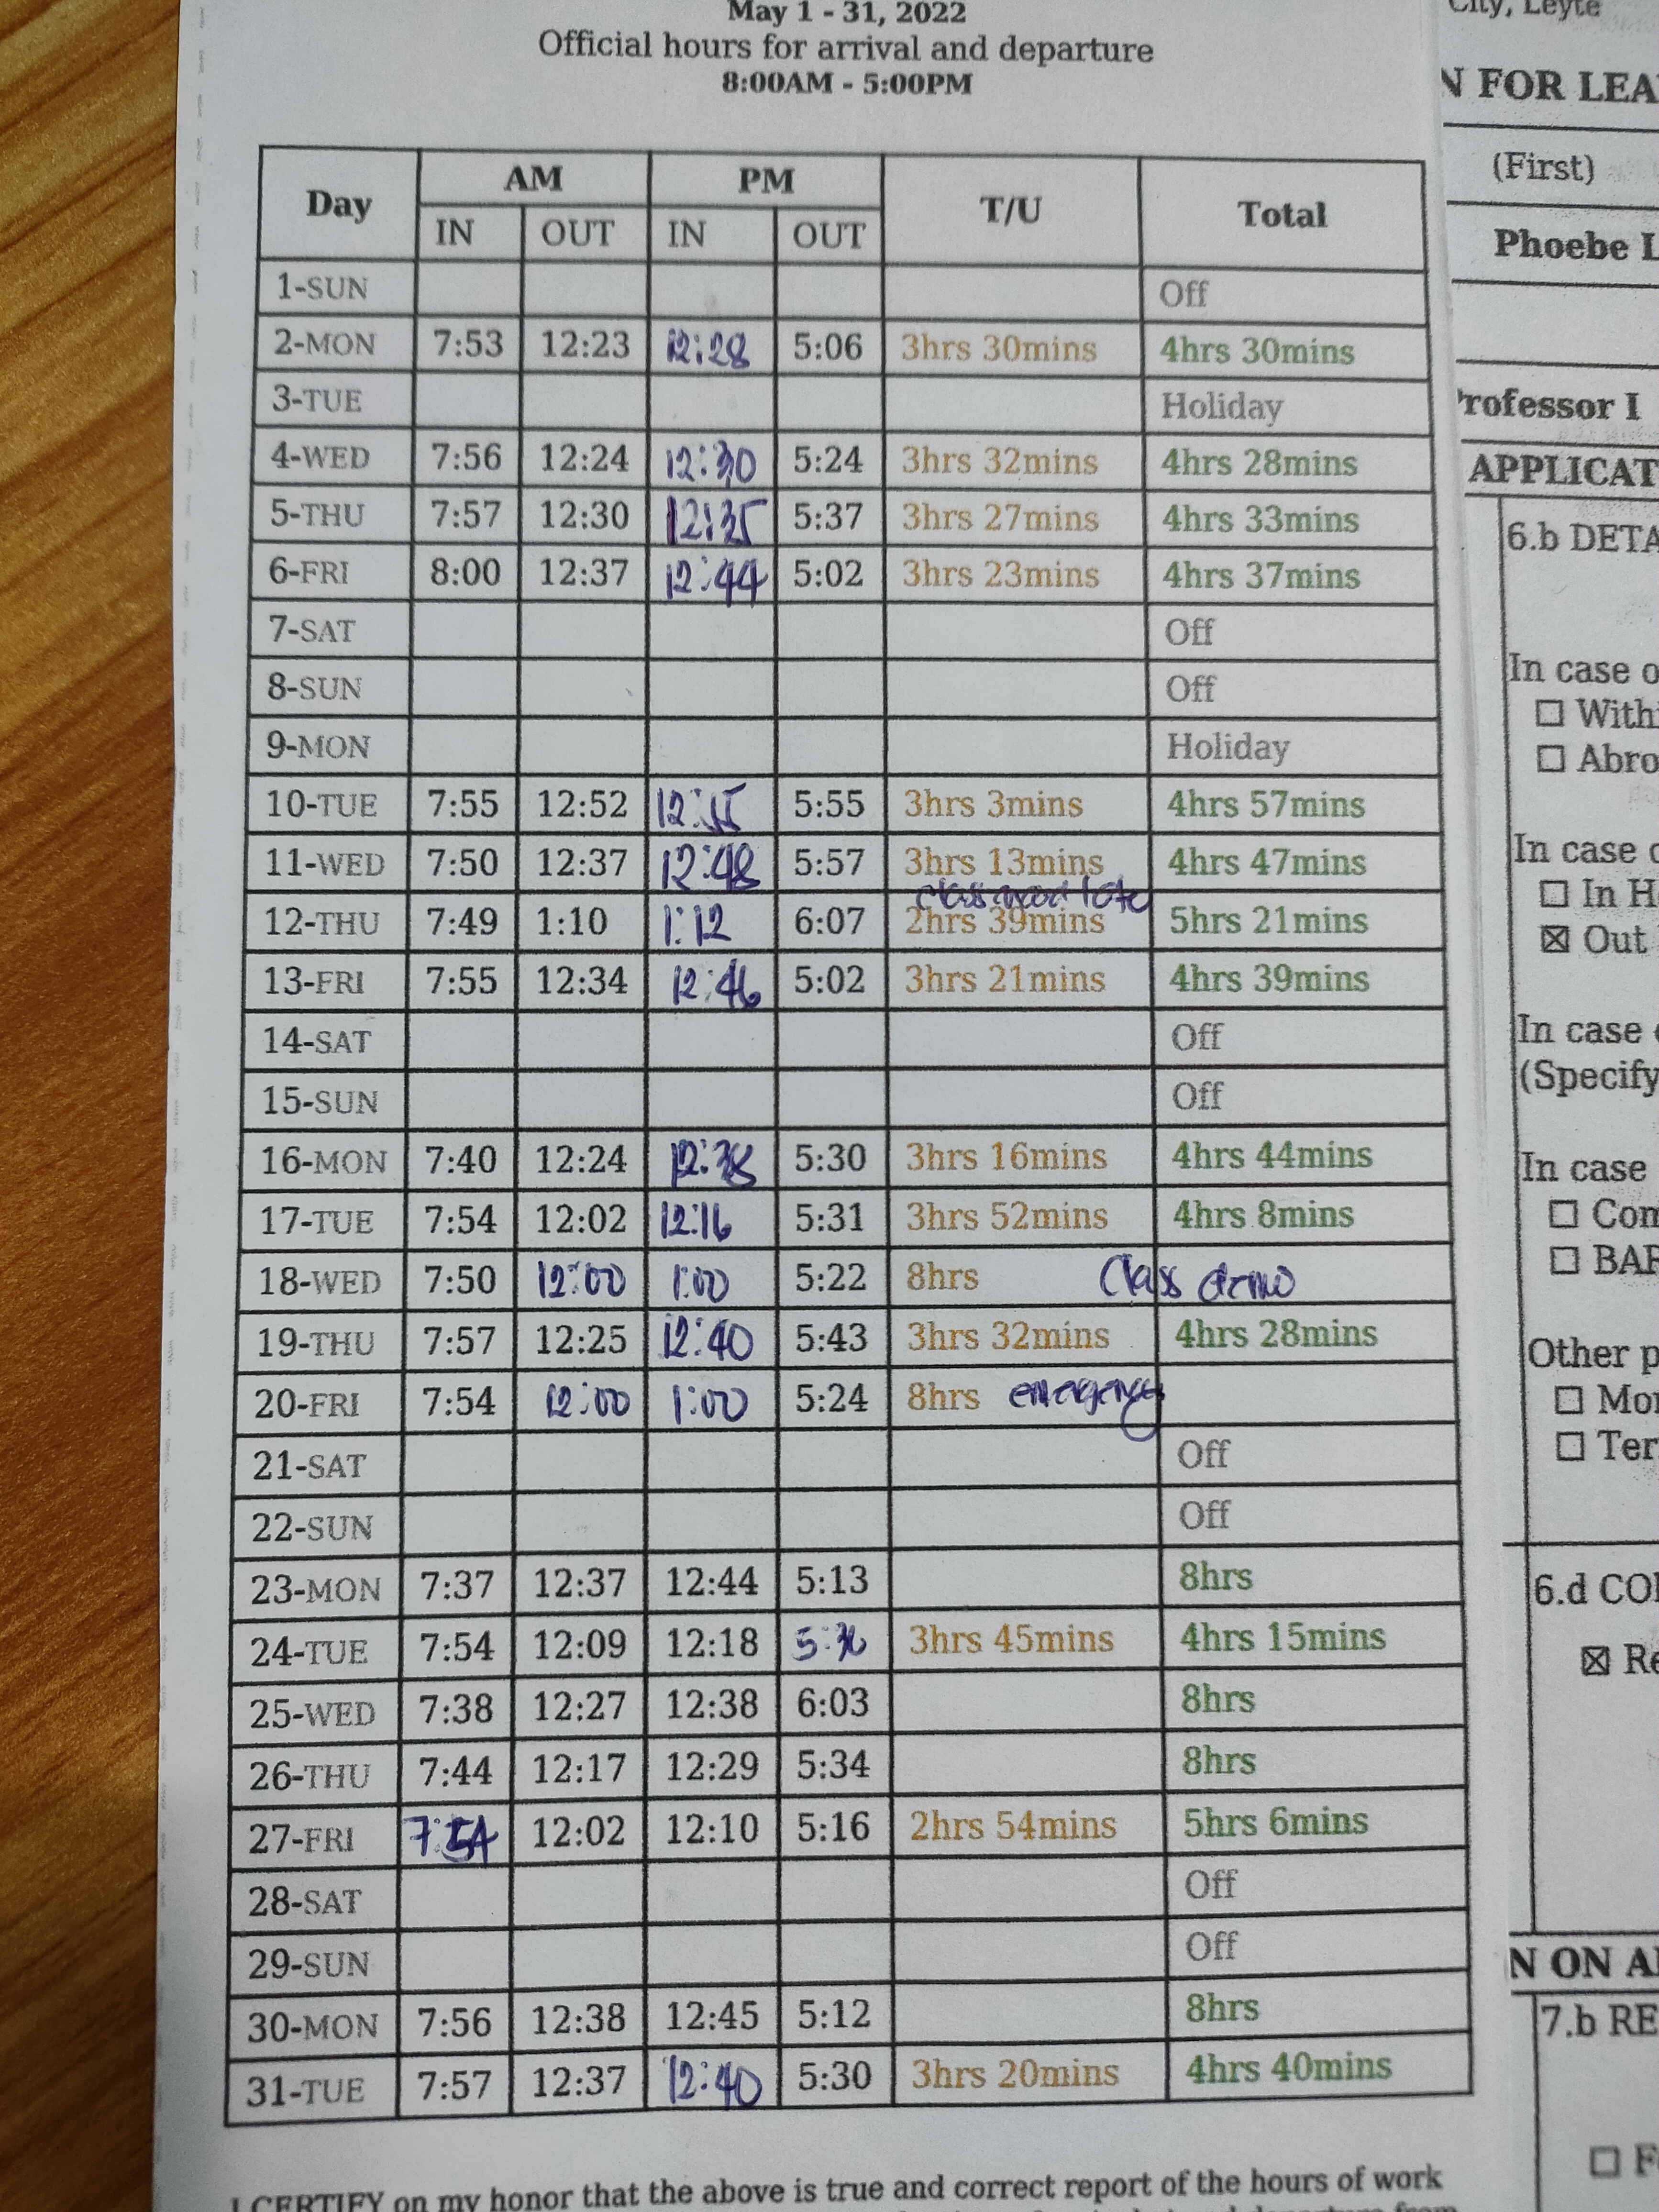 May 1 - 31, 2022
Official hours for arrival and departure
8:00AM - 5:00PM
Day AM PM T/U Total
IN OUT IN OUT
1-SUN Off
2-MON 7:53 12:23 12:28 5:06 3hrs 30mins 4hrs 30mins
3-TUE Holiday
4-WED 7:56 12:24 12:30 5:24 3hrs 32mins 4hrs 28mins
5-THU 7:57 12:30 12:35 5:37 3hrs 27mins 4hrs 33mins
6-FRI 8:00 12:37 12:44 5:02 3hrs 23mins 4hrs 37mins
7-SAT Off
8-SUN Off
9-MON Holiday
10-TUE 7:55 12:52 5:55 3hrs 3mins 4hrs 57mins
11-WED 7:50 12:37 12:48 5:57 3hrs 13mins 4hrs 47mins
class late
12-THU 7:49 1:10 1:12 6:07 2hrs 39mins 5hrs 21mins
13-FRI 7:55 12:34 12:46 5:02 3hrs 21mins 4hrs 39mins
14-SAT Off
15-SUN Off
16-MON 7:40 12:24 12:38 5:30 3hrs 16mins 4hrs 44mins
17-TUE 7:54 12:02 12:16 5:31 3hrs 52mins 4hrs 8mins
18-WED 7:50 12:00 1:00 5:22 8hrs Class demo
19-THU 7:57 12:25 12:40 5:43 3hrs 32mins 4hrs 28mins
20-FRI 7:54 12:00 1:00 5:24 8hrs emergency
21-SAT Off
22-SUN Off
23-MON 7:37 12:37 12:44 5:13 8hrs
24-TUE 7:54 12:09 12:18 3hrs 45mins 4hrs 15mins
25-WED 7:38 12:27 12:38 6:03 8hrs
26-THU 7:44 12:17 12:29 5:34 8hrs
27-FRI 7:54 12:02 12:10 5:16 2hrs 54mins 5hrs 6mins
28-SAT Off
29-SUN Off
30-MON 7:56 12:38 12:45 5:12 8hrs
31-TUE 7:57 12:37 12:40 5:30 3hrs 20mins 4hrs 40mins
I CERTIFY on my honor that the above is true and correct report of the hours of work
City, Leyte
N FOR LEA
(First)
Phoebe L
Professor I
APPLICAT
6.b DETA
In case o
☐ Withi
☐ Abro
In case o
☐ In H
☒ Out
In case
(Specify
In case
☐ Com
☐ BAR
Other p
☐ Mon
☐ Ter
6.d CO
☒ Re
N ON A
7.b RE
☐ F